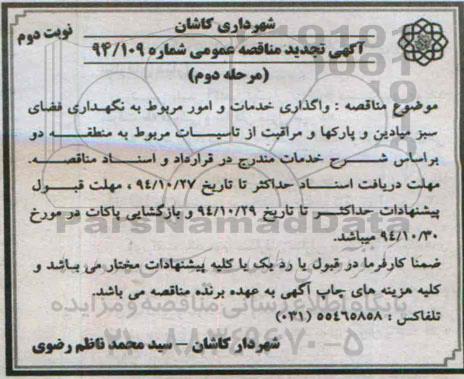 شهرداری کاشان
نوبت دوم
آگهی تجدید مناقصه عمومی شماره ۹۴/۱۰۹
(مرحله دوم)
موضوع مناقصه : واگذاری خدمات و امور مربوط به نگهداری فضای
سبز میادین و پارکها و مراقبت از تاسیسات مربوط به منطقه دو
براساس شرح خدمات مندرج در قرارداد و اسناد مناقصه.
مهلت دریافت اسناد حداکثر تا تاریخ ۹۴/۱۰/۲۷ ، مهلت قبول
پیشنهادات حداکثر تا تاریخ ۹۴/۱۰/۲۹ و بازگشایی پاکات در مورخ
۹۴/۱۰/۳۰ میباشد.
ضمنا کارفرما در قبول یا رد یک یا کلیه پیشنهادات مختار می باشد و
کلیه هزینه های چاپ آگهی به عهده برنده مناقصه می باشد.
تلفاکس : ۵۵۴۶۵۸۵۸ (۰۳۱)
شهردار کاشان – سید محمد ناظم رضوی
ParsNamadData
پایگاه اطلاع رسانی مناقصه و مزایده
۰۲۱-۸۸۳۴۹۶۷۰-۵